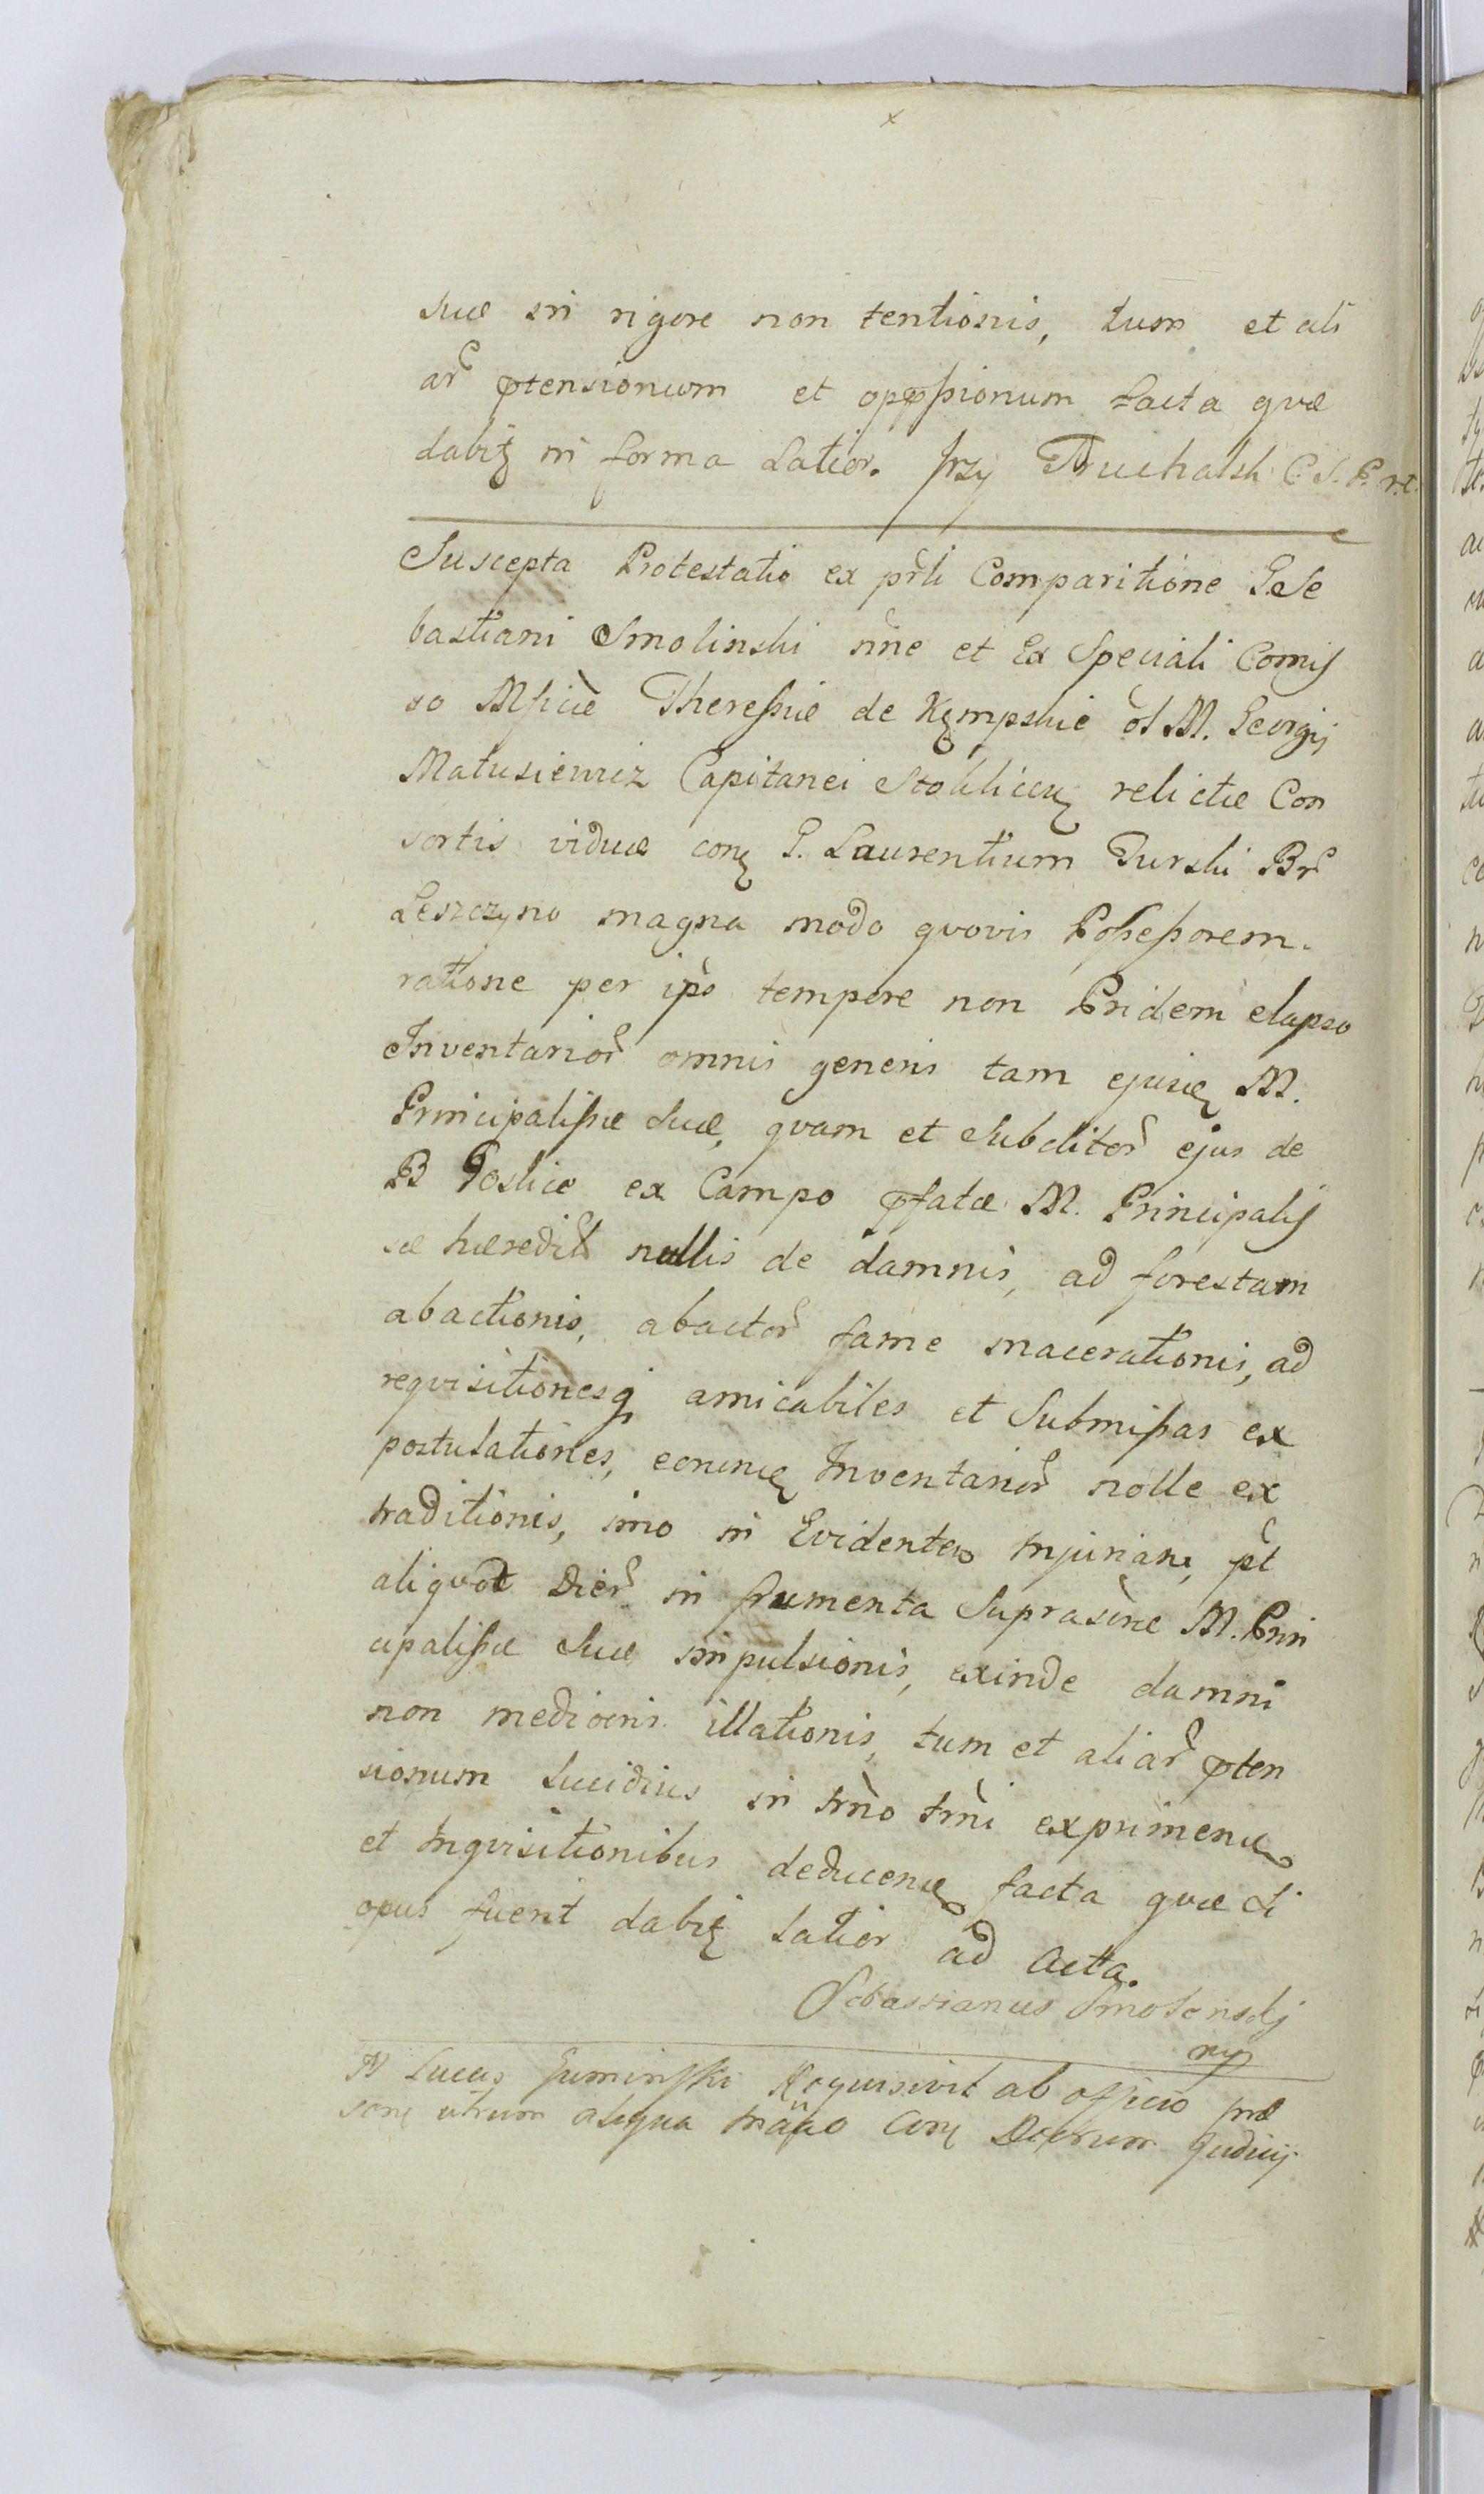 suæ in rigore non tentionis, tum et ali
ar ptensionum et oppssionum facta quæ
dabitz in forma Latior.
Suscepta Protestatio ex prli Comparitione G. Se
bastiani Smolinski nne et Ex Speciali Comis
so Mficæ Theressiæ de Kempskie ol M. Georgij
Matusiewicz Capitanei relictæ Con
sortis viduæ con G. Laurentium Turski Br
Leszczyno magna modo quovis Possessorem.
ratione per ipo tempore non Pridem elapso
Inventarior omnis generis tam M.
Principalissæ Suæ, quam et Subditor ejus de
B ex Campo pfatæ M. Principalis
sæ hæredit nullis de damnis, ad forestam
abactionis, abactor fame macerationis, ad
requisitionesq amicabiles et Submissas ex
postulationes, Inventarior nolle ex
traditionis, imo in Evidentem Injuriam, pt
aliquot Dier in frumenta M. Prin
cipalissæ Suæ impulsionis, exinde damni
non mediocris illationis, tum et aliar pten
sionum lucidius in trno trni exprimen
et Inquisitionibus deducen facta quæ Si
opus fuerit dabitz latior ad Acta.
Sebastianus Smolenski
mp
N Lucas Guminski Requisivit ab officio præ
sen utrum aliqua Con Decretum Judicij